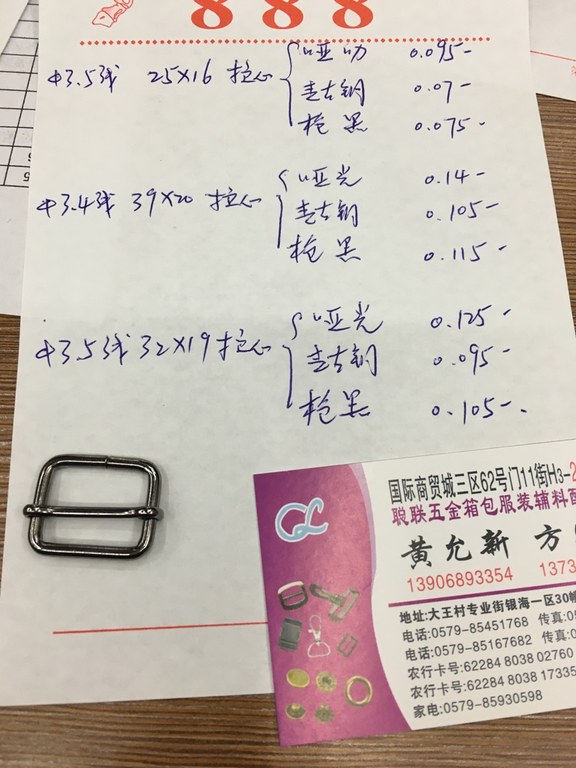 888
中3.5线 25×16 拉心 哑叻 0.095-
青古铜 0.07-
枪黑 0.075-
中3.4线 39×20 拉心 哑光 0.14-
青古铜 0.105-
枪黑 0.115-
中3.5线 32×19 拉心 哑光 0.125-
青古铜 0.095-
枪黑 0.105-.
国际商贸城三区62号门11街H3-2
聪联五金箱包服装辅料
黄允新 方
13906893354 1373
地址:大王村专业街银海一区30幢
电话:0579-85451768 传真:05
电话:0579-85167682 传真:0
农行卡号:62284 8038 02760
农行卡号:62284 8038 17335
家电:0579-85930598